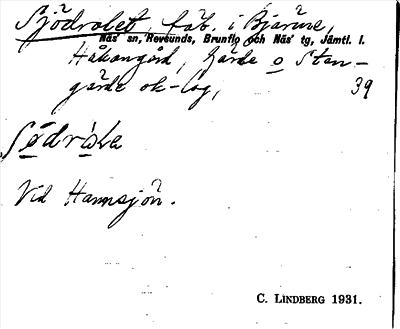 Sjödrolet, fäb. i Bjärme,
Näs' sn, Revsunds, Brunflo och Näs' tg, Jämtl. l.
Håkangård, Gärde o Stan-
gärde ok-lag, 39
Södrǻla
Vid Hamsjön.
C. LINDBERG 1931.